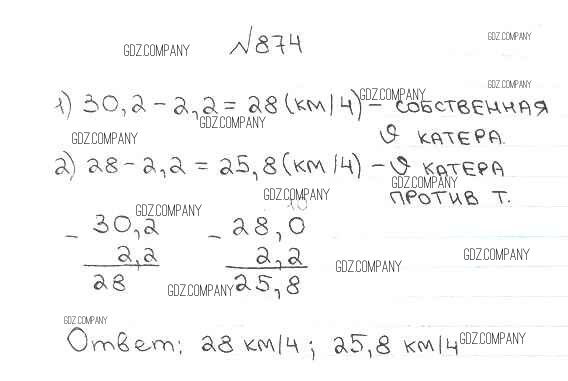 GDZ.COMPANY
№874
GDZ.COMPANY
GDZ.COMPANY
GDZ.COMPANY
1) 30,2 - 2,2 = 28 (км/ч) - собственная
GDZ.COMPANY
υ катера.
GDZ.COMPANY
2) 28 - 2,2 = 25,8 (км/ч) - υ катера
GDZ.COMPANY
против т.
GDZ.COMPANY
GDZ.COMPANY
- 30,2 - 28,0
2,2 2,2
28 25,8
GDZ.COMPANY
GDZ.COMPANY
GDZ.COMPANY
Ответ: 28 км/ч; 25,8 км/ч
GDZ.COMPANY